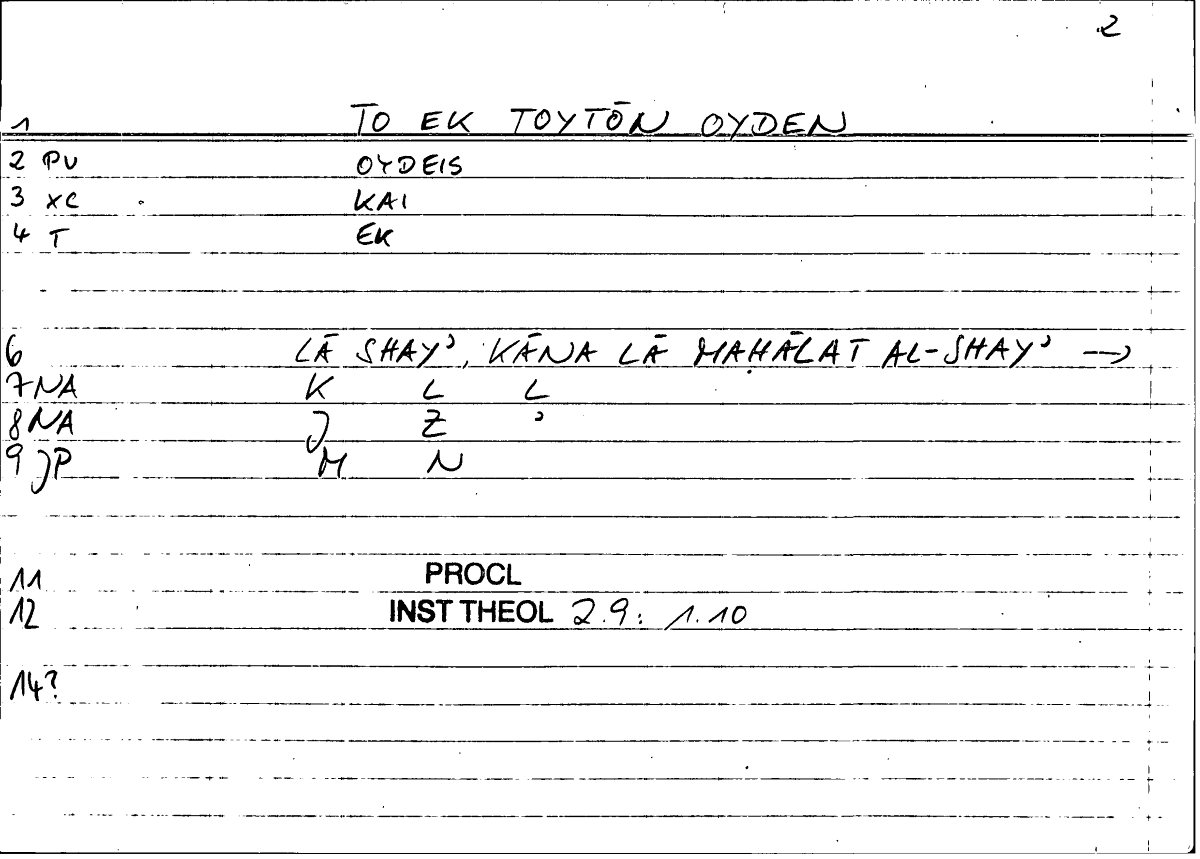 2
1 TO EK TOYTŌN OYDEN
2 PV OYDEIS
3 XC KAI
4 T EK
6 LĀ SHAYʾ, KĀNA LĀ MAḤĀLAT AL-SHAYʾ →
7 NA K L L
8 NA J Z ʾ
9 JP M N
11 PROCL
12 INST THEOL 2.9: 1.10
14?